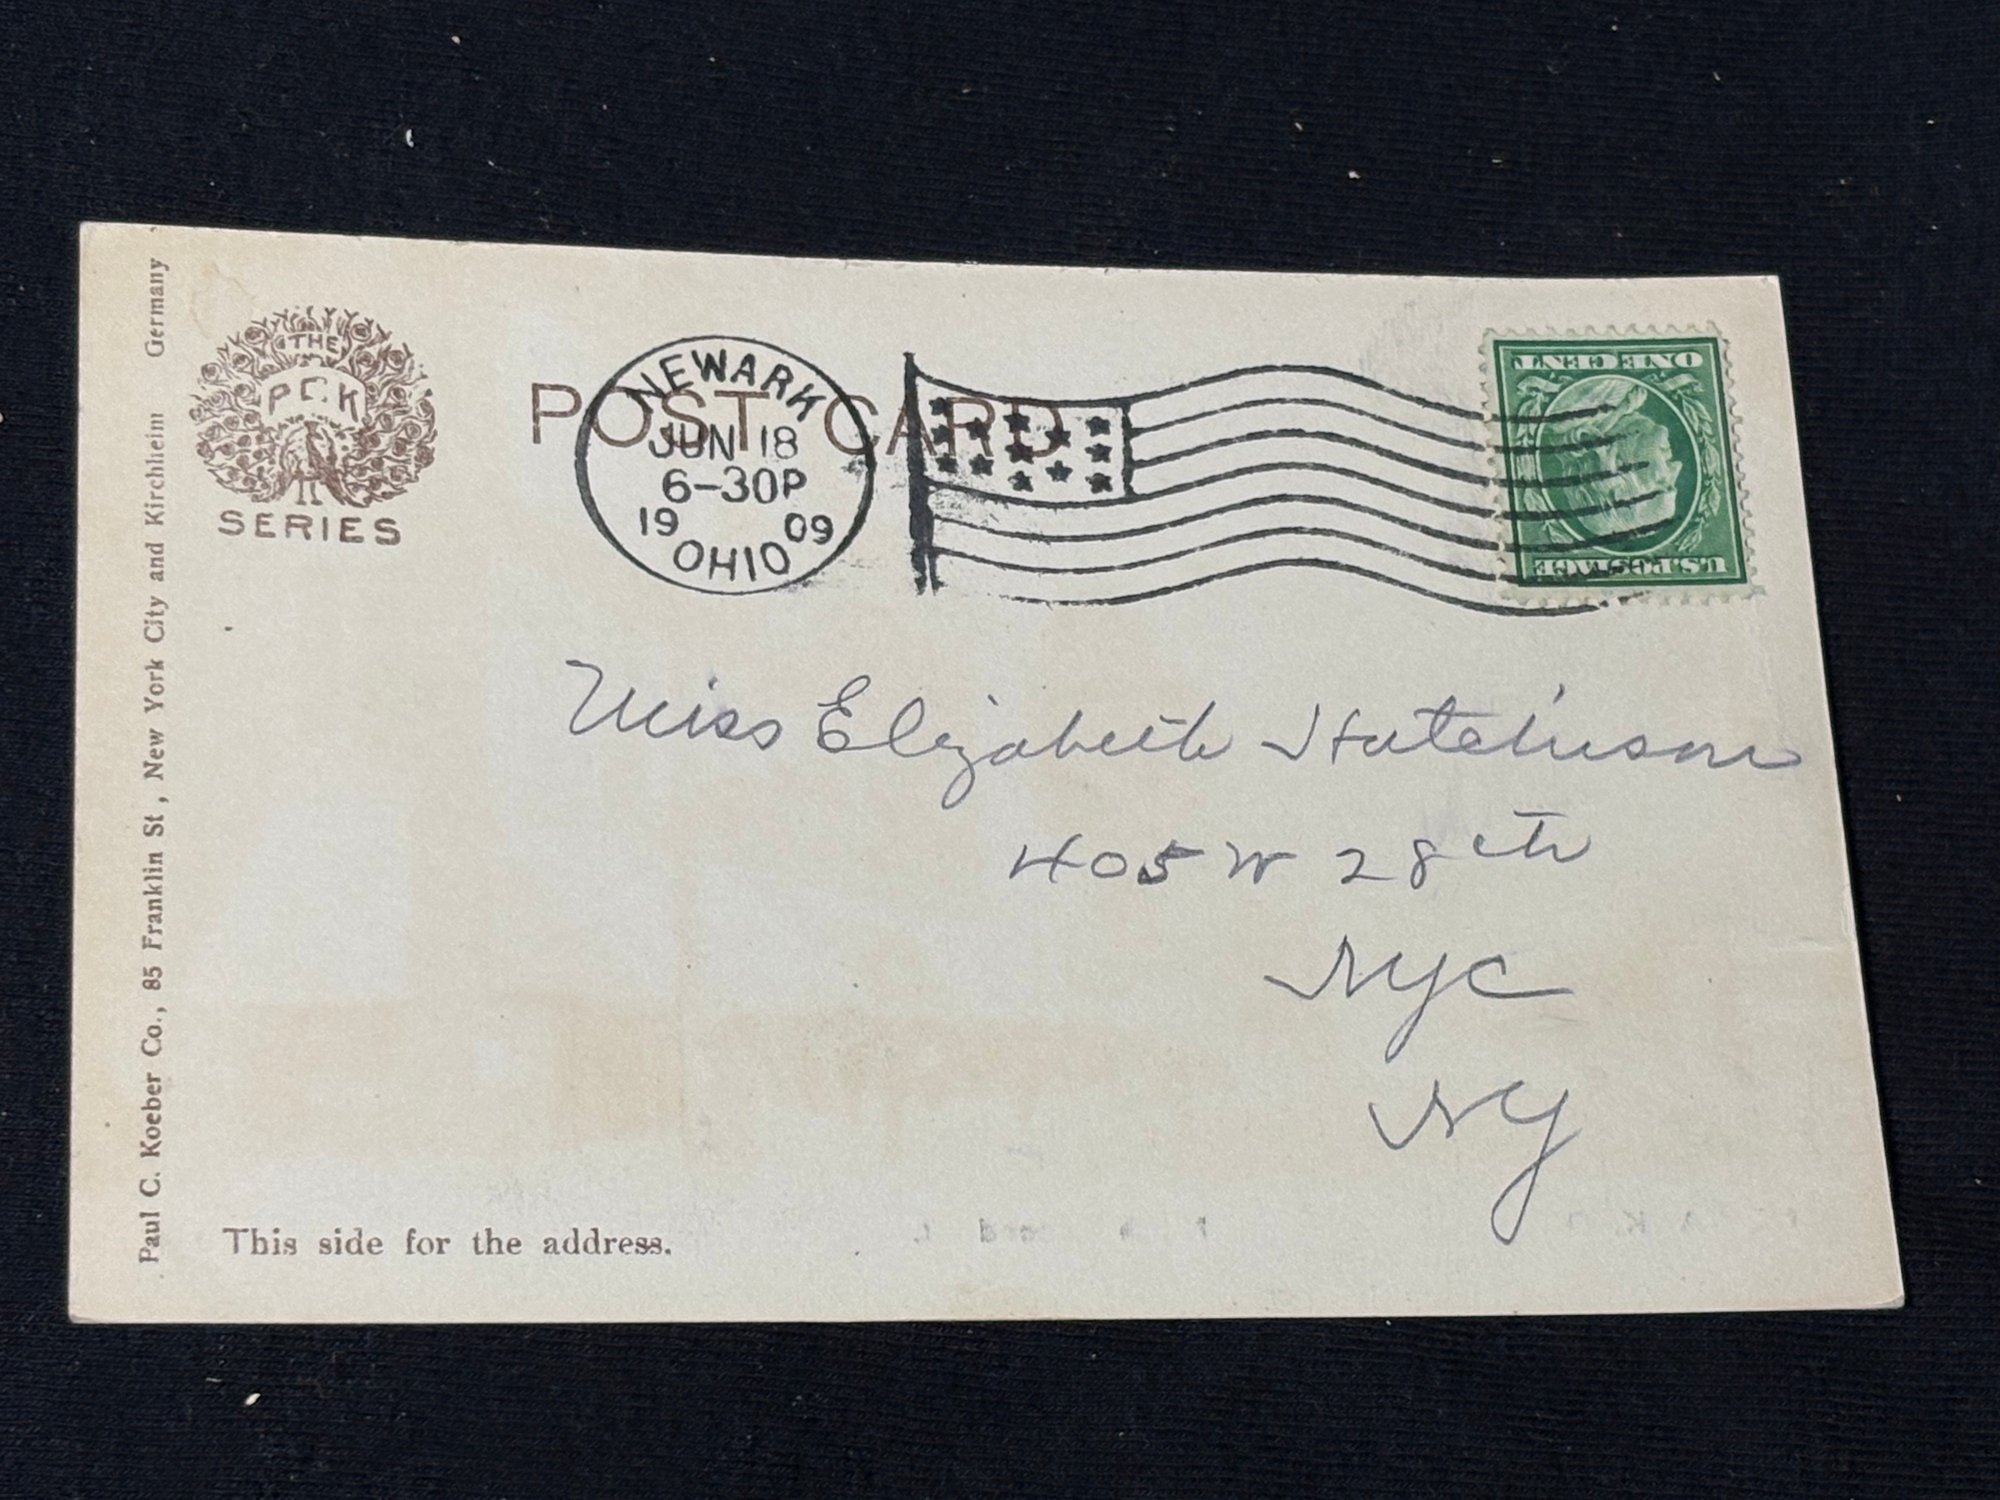 THE
P.C.K
SERIES
POST CARD
NEWARK
JUN 18
6-30P
19 09
OHIO
ONE CENT
U.S. POSTAGE
Miss Elizabeth Hutchison
405 W 28th
NYC
NY
This side for the address.
Paul C. Koeber Co., 85 Franklin St, New York City and Kirchheim Germany